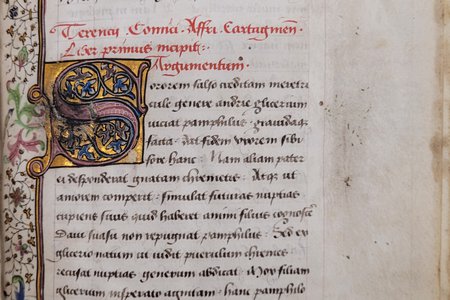 Terencij Comici Afferi Cartaginen̄.
Liber primus incipit:
Argumentum.
Sororem falso creditam meretri
cule genere andrie glicerium
uiciat pamphilus. grauidaqꝫ
facta. dat fidem vxorem sibi
fore hanc: Nam aliam pater
ei desponderat gnatam chremetis: Atqꝫ ut
amorem comperit: simulat futuras nuptias
cupiens suus quid haberet animi filius cognosc̄e
Daui suasu non repugnat pamphilus: Sed ex
glicerio natum ut uidit puerulum chremes
recusat nuptias generum abdicat: Mox filiam
glicerium insperato agnitam: hanc pamphilo